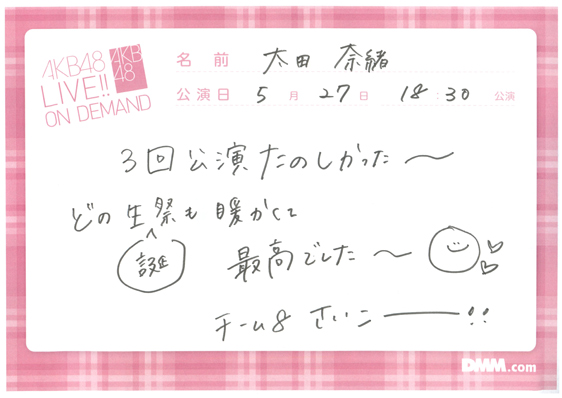 AKB48
LIVE!!
ON DEMAND
AKB
48
名前 太田 奈緒
公演日 5月27日 18:30 公演
3回公演たのしかった〜
どの生誕祭も暖かくて
最高でした〜
チーム8 さいこー!!
DMM.com